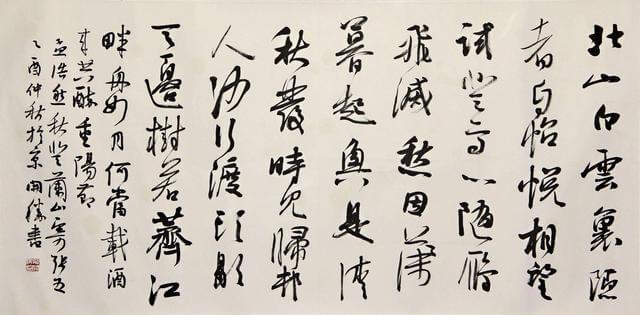 北山白雲裏隱
者自怡悅相望
試登高心隨雁
飛滅愁因薄
暮起興是清
秋發時見歸邨
人沙行渡頭歇
天邊樹若薺江
畔舟如月何當載酒
來共醉重陽節
孟浩然秋登蘭山寄張五
乙酉仲秋於京 開勝書